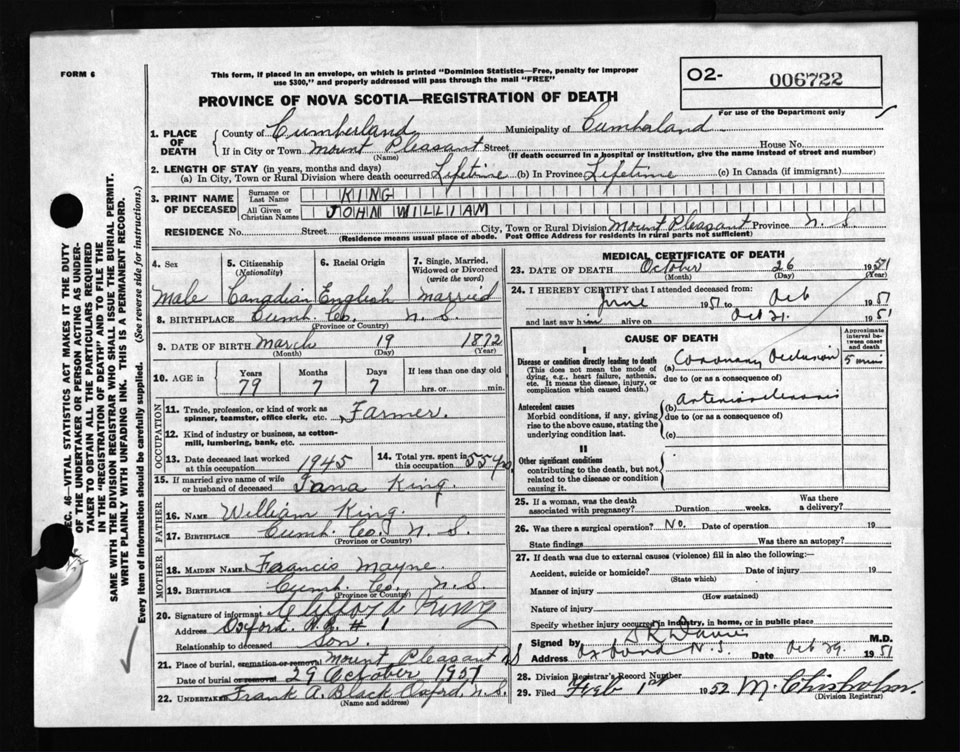 FORM 6
This form, if placed in an envelope, on which is printed "Dominion Statistics—Free, penalty for improper
use $300," and properly addressed will pass through the mail "FREE"
O2- 006722
For use of the Department only
PROVINCE OF NOVA SCOTIA—REGISTRATION OF DEATH
1. PLACE OF DEATH { County of Cumberland Municipality of Cumberland
If in City or Town Mount Pleasant Street House No.
(Name) (If death occurred in a hospital or institution, give the name instead of street and number)
2. LENGTH OF STAY (in years, months and days)
(a) In City, Town or Rural Division where death occurred Lifetime (b) In Province Lifetime (c) In Canada (if immigrant)
3. PRINT NAME OF DECEASED { Surname or Last Name KING
All Given or Christian Names JOHN WILLIAM
RESIDENCE No. Street City, Town or Rural Division Mount Pleasant Province N. S
(Residence means usual place of abode. Post Office Address for residents in rural parts not sufficient)
4. Sex 5. Citizenship (Nationality) 6. Racial Origin 7. Single, Married, Widowed or Divorced (write the word)
Male Canadian English married
8. BIRTHPLACE Cumb. Co. N. S
(Province or Country)
9. DATE OF BIRTH March 19 1872
(Month) (Day) (Year)
10. AGE in Years Months Days If less than one day old
79 7 7 hrs. or min.
OCCUPATION
11. Trade, profession, or kind of work as spinner, teamster, office clerk, etc. Farmer.
12. Kind of industry or business, as cotton-mill, lumbering, bank, etc.
13. Date deceased last worked at this occupation 1945 14. Total yrs. spent in this occupation 55 yrs.
15. If married give name of wife or husband of deceased Jana King.
FATHER
16. NAME William King.
17. BIRTHPLACE Cumb. Co. N. S
(Province or Country)
MOTHER
18. MAIDEN NAME Francis Mayne.
19. BIRTHPLACE Cumb. Co. N. S
(Province or Country)
20. Signature of informant Clifford King
Address Oxford. R.R. # 1
Relationship to deceased Son.
21. Place of burial, cremation or removal Mount Pleasant NS
Date of burial or removal 29 October 1951
22. UNDERTAKER Frank A. Black Oxford, N.S.
(Name and address)
MEDICAL CERTIFICATE OF DEATH
23. DATE OF DEATH October 26 1951
(Month) (Day) (Year)
24. I HEREBY CERTIFY that I attended deceased from:
June 1951 to Oct 1951
and last saw him alive on Oct 21. 1951
CAUSE OF DEATH
Approximate interval between onset and death
I
Disease or condition directly leading to death (a) Coronary Occlusion 5 mins
(This does not mean the mode of dying, e.g., heart failure, asthenia, etc. It means the disease, injury, or complication which caused death.)
due to (or as a consequence of)
Antecedent causes (b) Arteriosclerosis
Morbid conditions, if any, giving rise to the above cause, stating the underlying condition last.
due to (or as a consequence of)
(c)
II
Other significant conditions
contributing to the death, but not related to the disease or condition causing it.
25. If a woman, was the death associated with pregnancy? Duration weeks. Was there a delivery?
26. Was there a surgical operation? No. Date of operation 19
State findings Was there an autopsy?
27. If death was due to external causes (violence) fill in also the following:—
Accident, suicide or homicide? Date of injury 19
(State which)
Manner of injury
(How sustained)
Nature of injury
Specify whether injury occurred in industry, in home, or in public place
Signed by Davies M.D.
Address Oxford N.S. Date Oct 29. 1951
28. Division Registrar's Record Number
29. Filed Feb 1st 1952 M. Chisholm.
(Division Registrar)
SEC. 46—VITAL STATISTICS ACT MAKES IT THE DUTY
OF THE UNDERTAKER OR PERSON ACTING AS UNDER-
TAKER TO OBTAIN ALL THE PARTICULARS REQUIRED
IN THE "REGISTRATION OF DEATH" AND TO FILE THE
SAME WITH THE DIVISION REGISTRAR WHO SHALL ISSUE THE BURIAL PERMIT.
WRITE PLAINLY WITH UNFADING INK. THIS IS A PERMANENT RECORD.
Every item of Information should be carefully supplied. (See reverse side for instructions.)